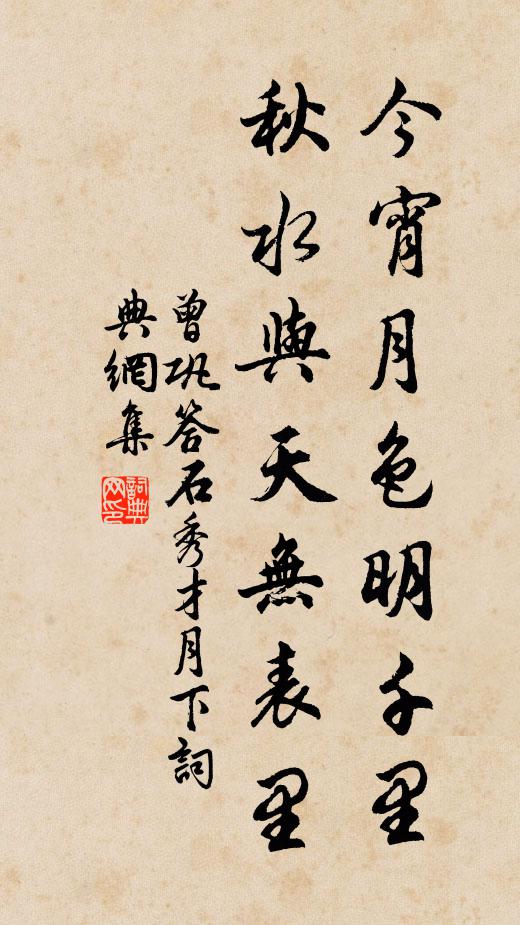 今宵月色明千里
秋水與天無表里
曾巩答石秀才月下詞
典網集
詞典网印